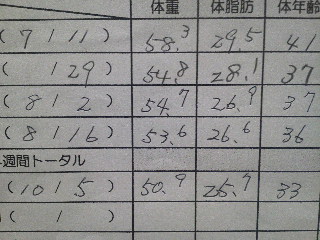 体重 体脂肪 体年齢
(7/11) 58.3 29.5 41
( /29) 54.8 28.1 37
(8/2) 54.7 26.9 37
(8/16) 53.6 26.6 36
週間トータル
(10/5) 50.9 25.7 33
( / )